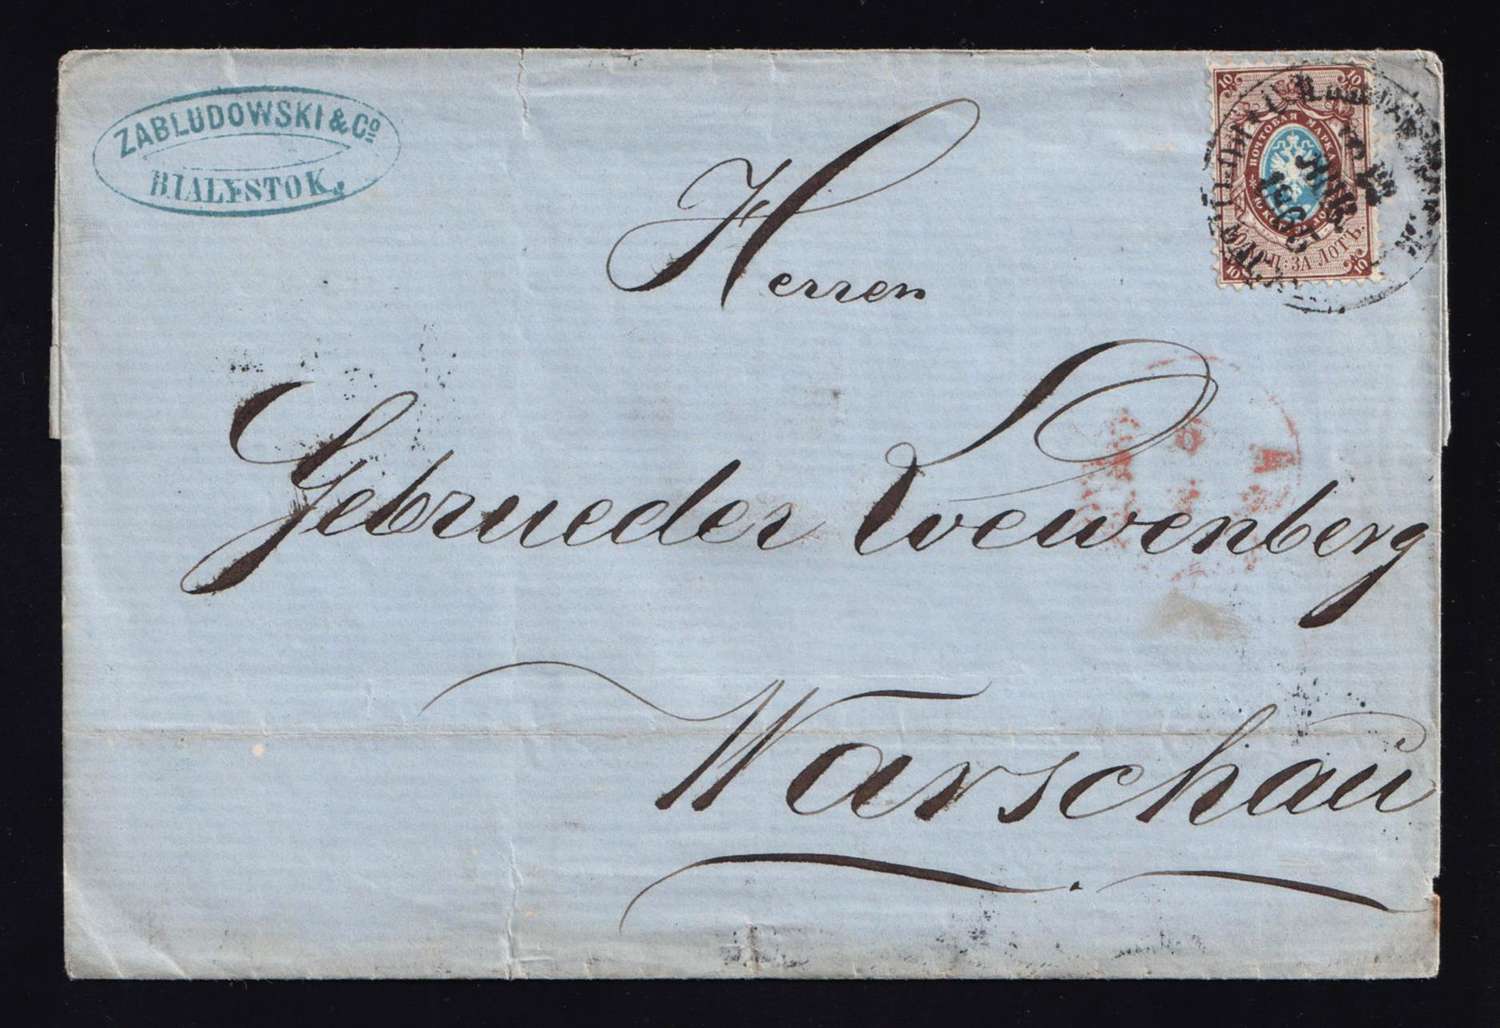 ZABLUDOWSKI & Cº
BIALYSTOK.
10 10
ПОЧТОВАЯ МАРКА
10 КОП. ЗА ЛОТЪ.
10 10
Herren
Gebrueder Loewenberg
Warschau